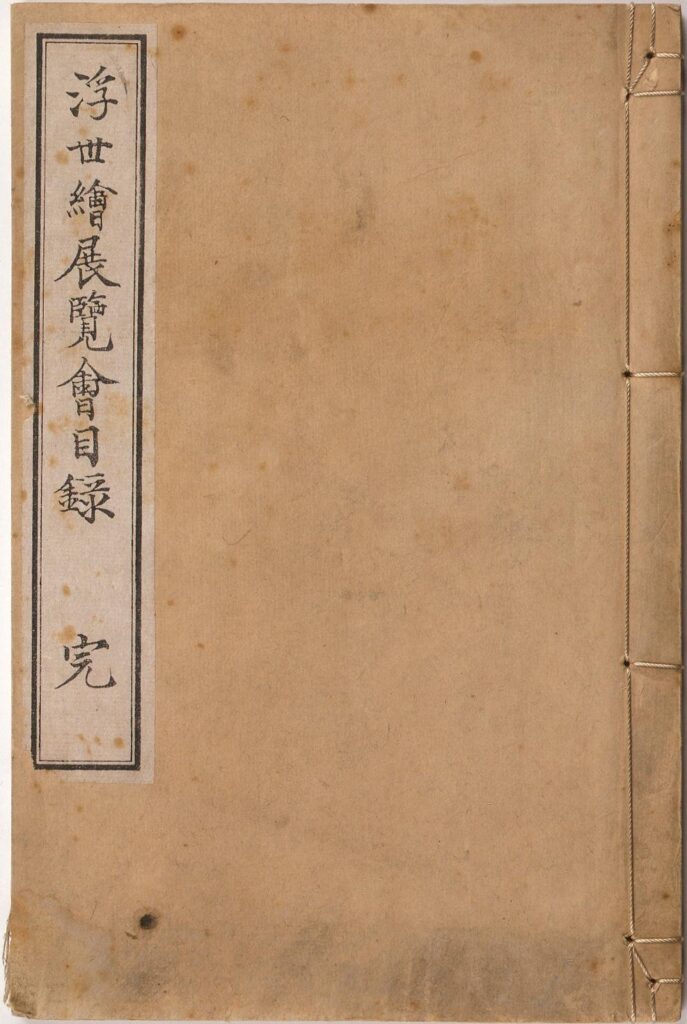 浮世繪展覽會目錄 完